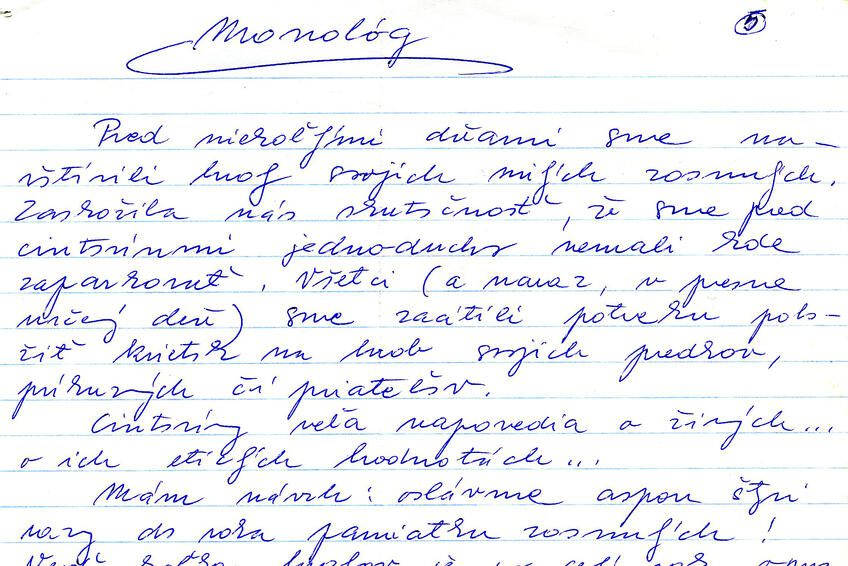 Monológ
5
Pred niekoľkými dňami sme na-
vštívili hrob svojich milých zosnulých.
Zaskočila nás skutočnosť, že sme pred
cintorínmi jednoducho nemali kde
zaparkovať. Všetci (a naraz, v presne
určený deň) sme zacítili potrebu polo-
žiť kvietok na hrob svojich predkov,
príbuzných či priateľov.
Cintoríny veľa napovedia o živých...
o ich etických hodnotách...
Mám návrh: oslávme aspoň štyri
razy do roka pamiatku zosnulých!